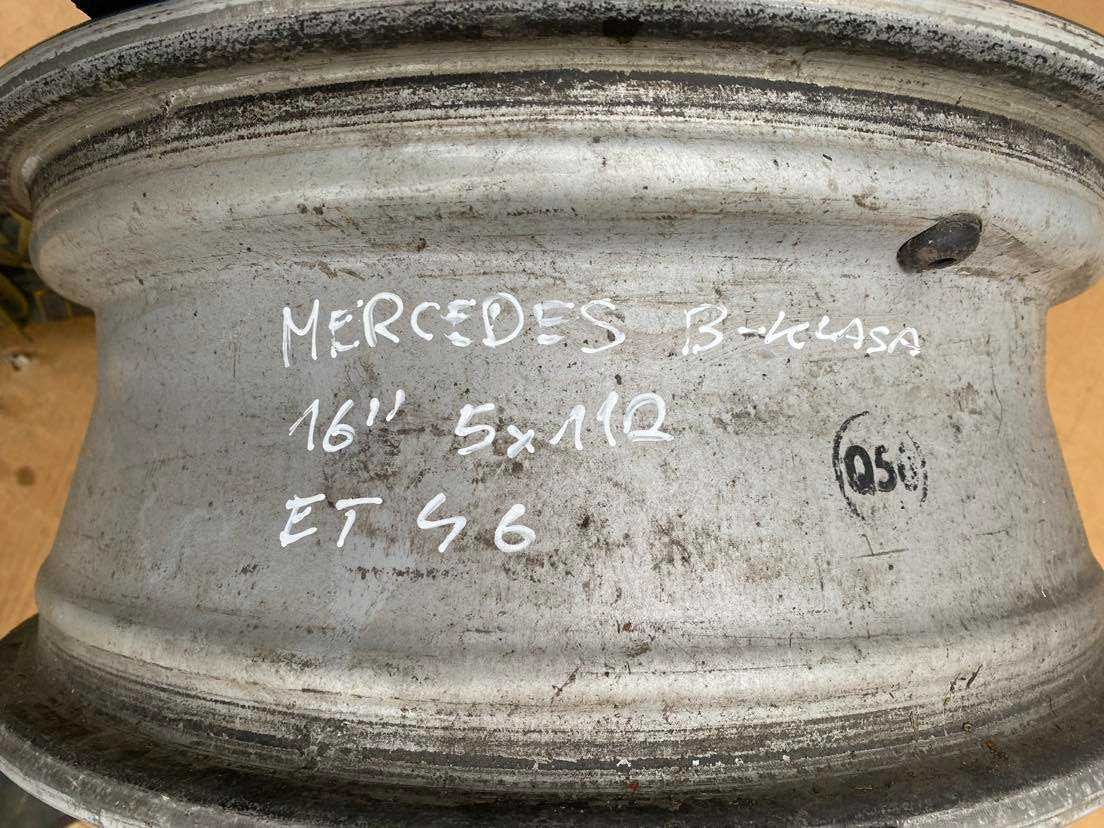 MERCEDES B-KLASA
16" 5x112
ET 46